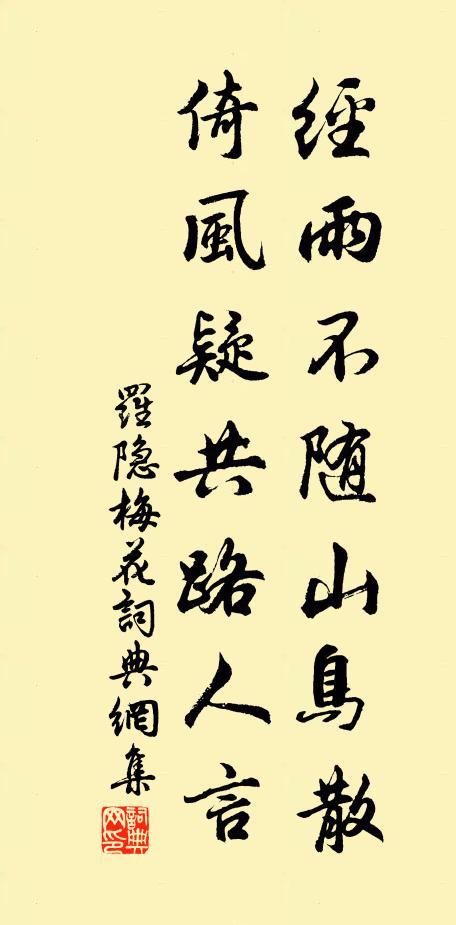 經雨不随山鳥散
倚風疑共路人言
羅隐梅花詞典網集
詞典网印